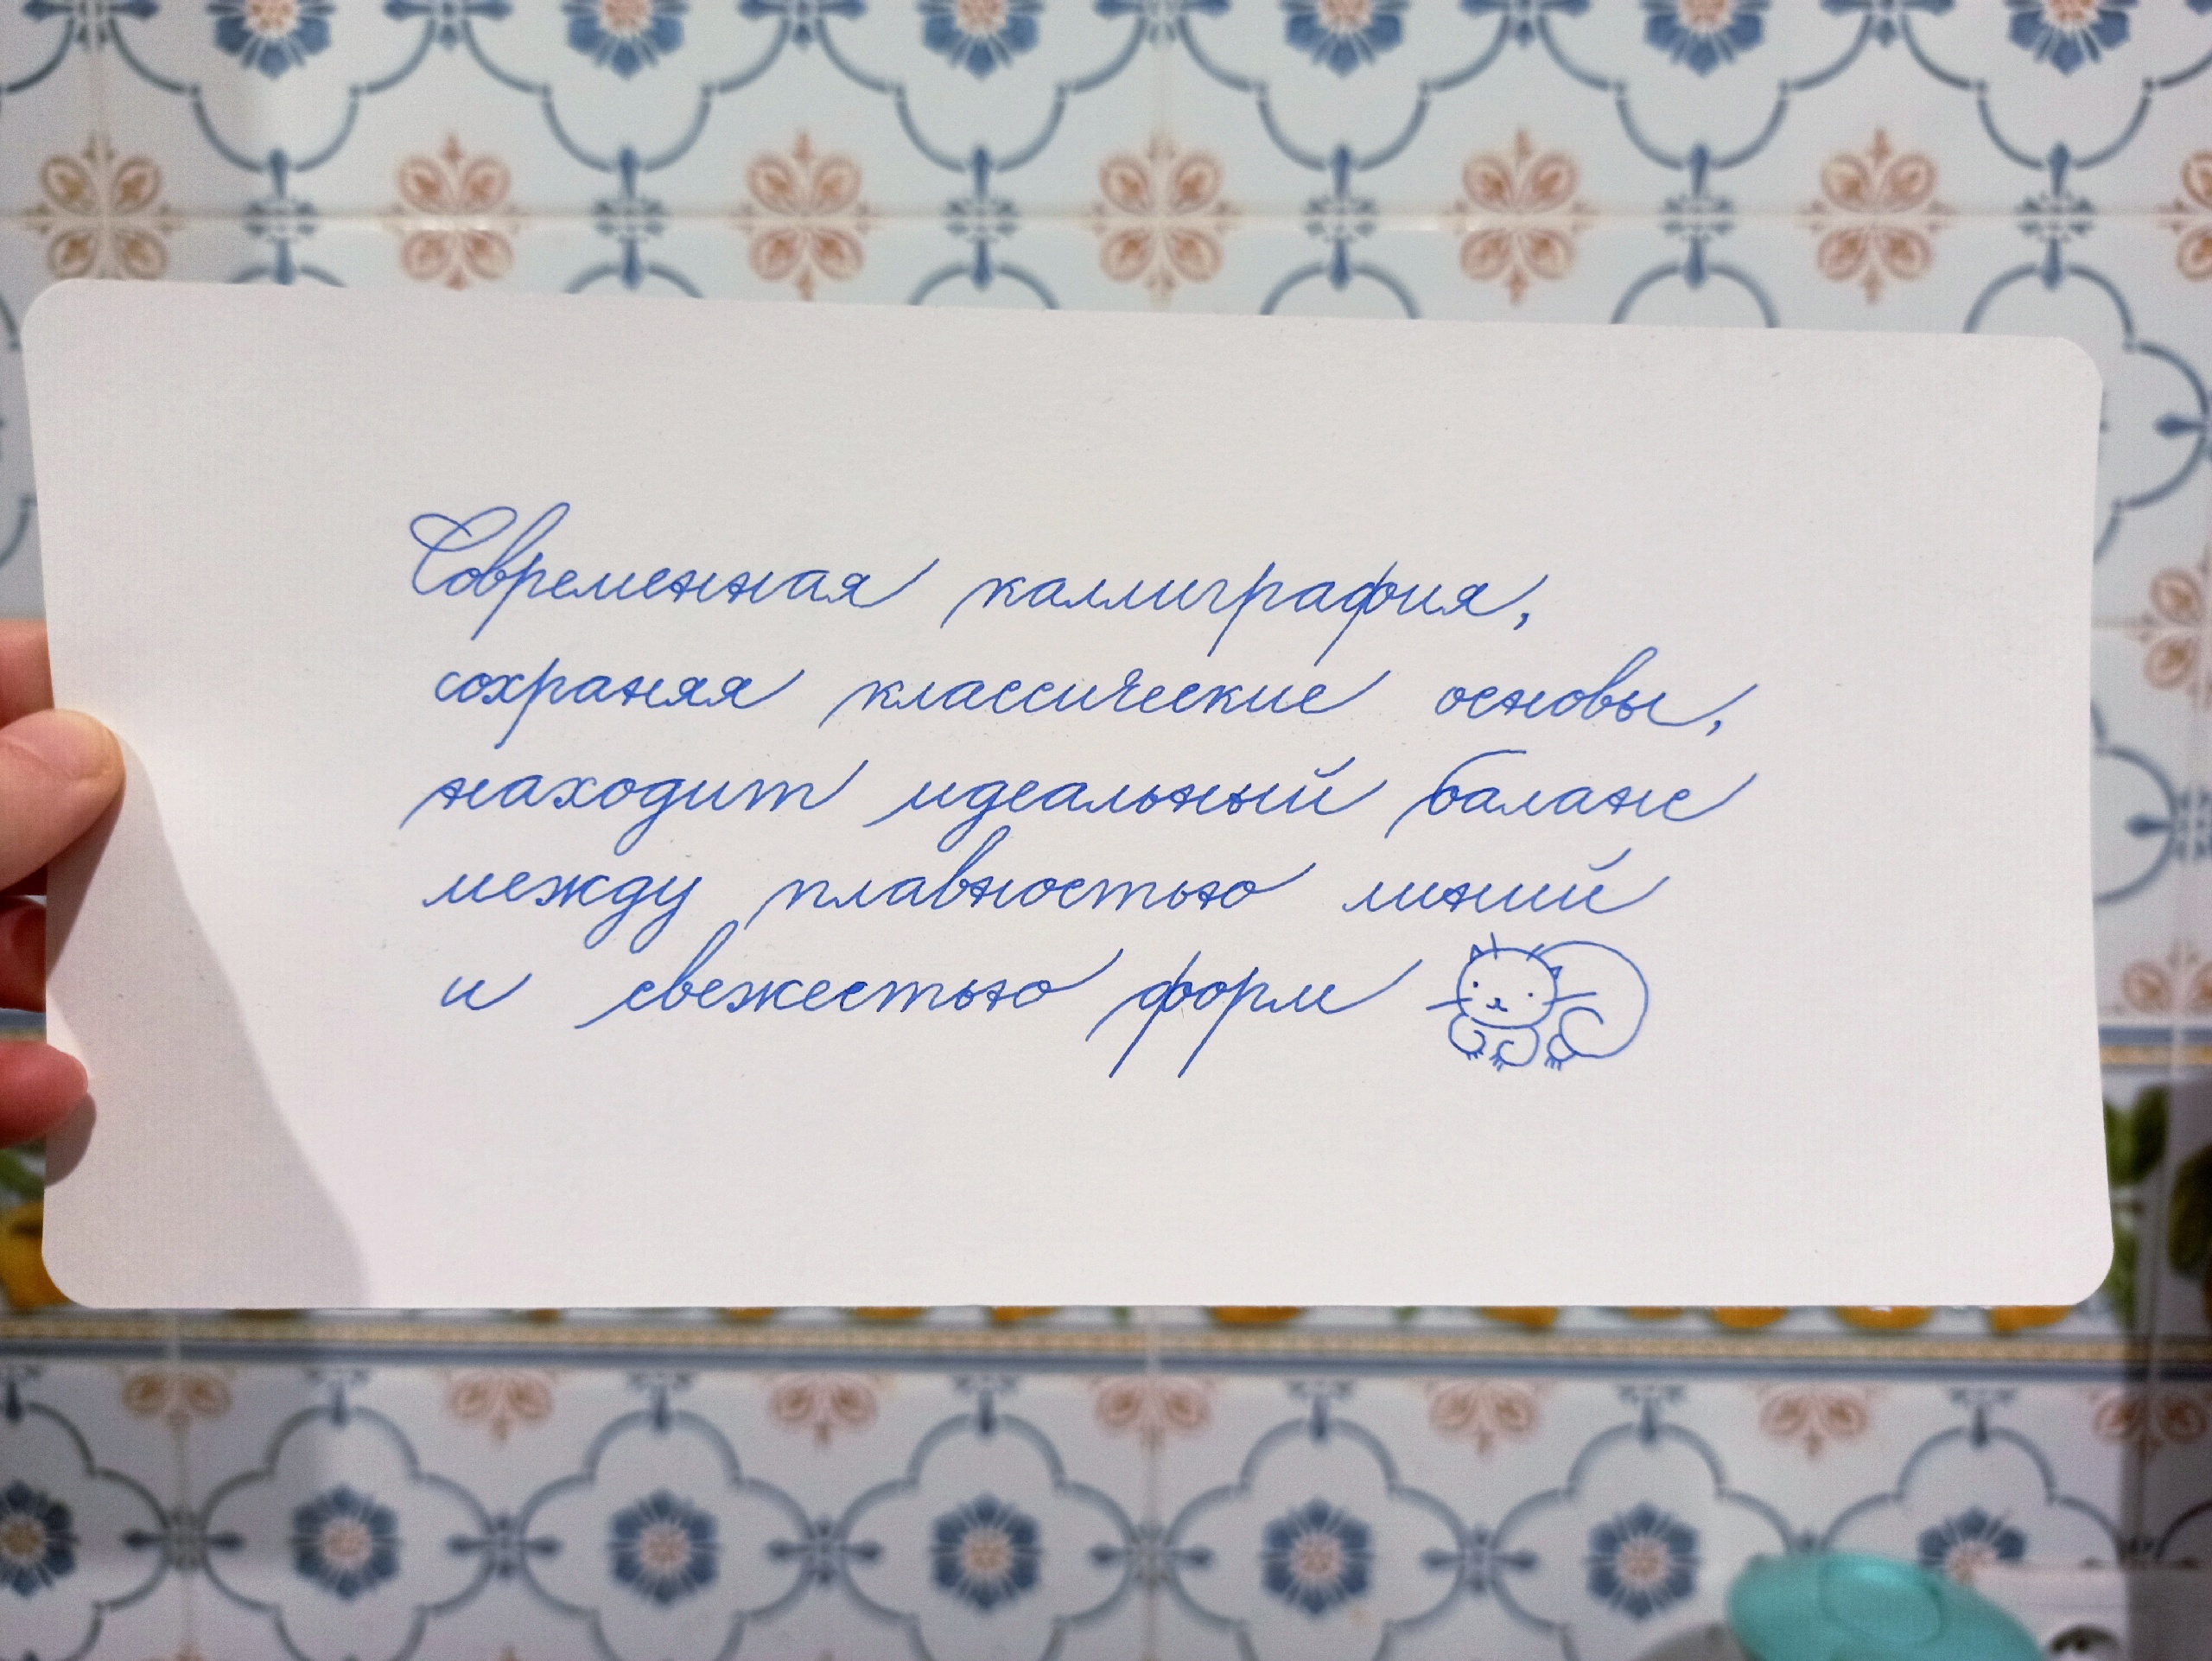 Современная каллиграфия,
сохраняя классические основы,
находит идеальный баланс
между плавностью линий
и свежестью форм